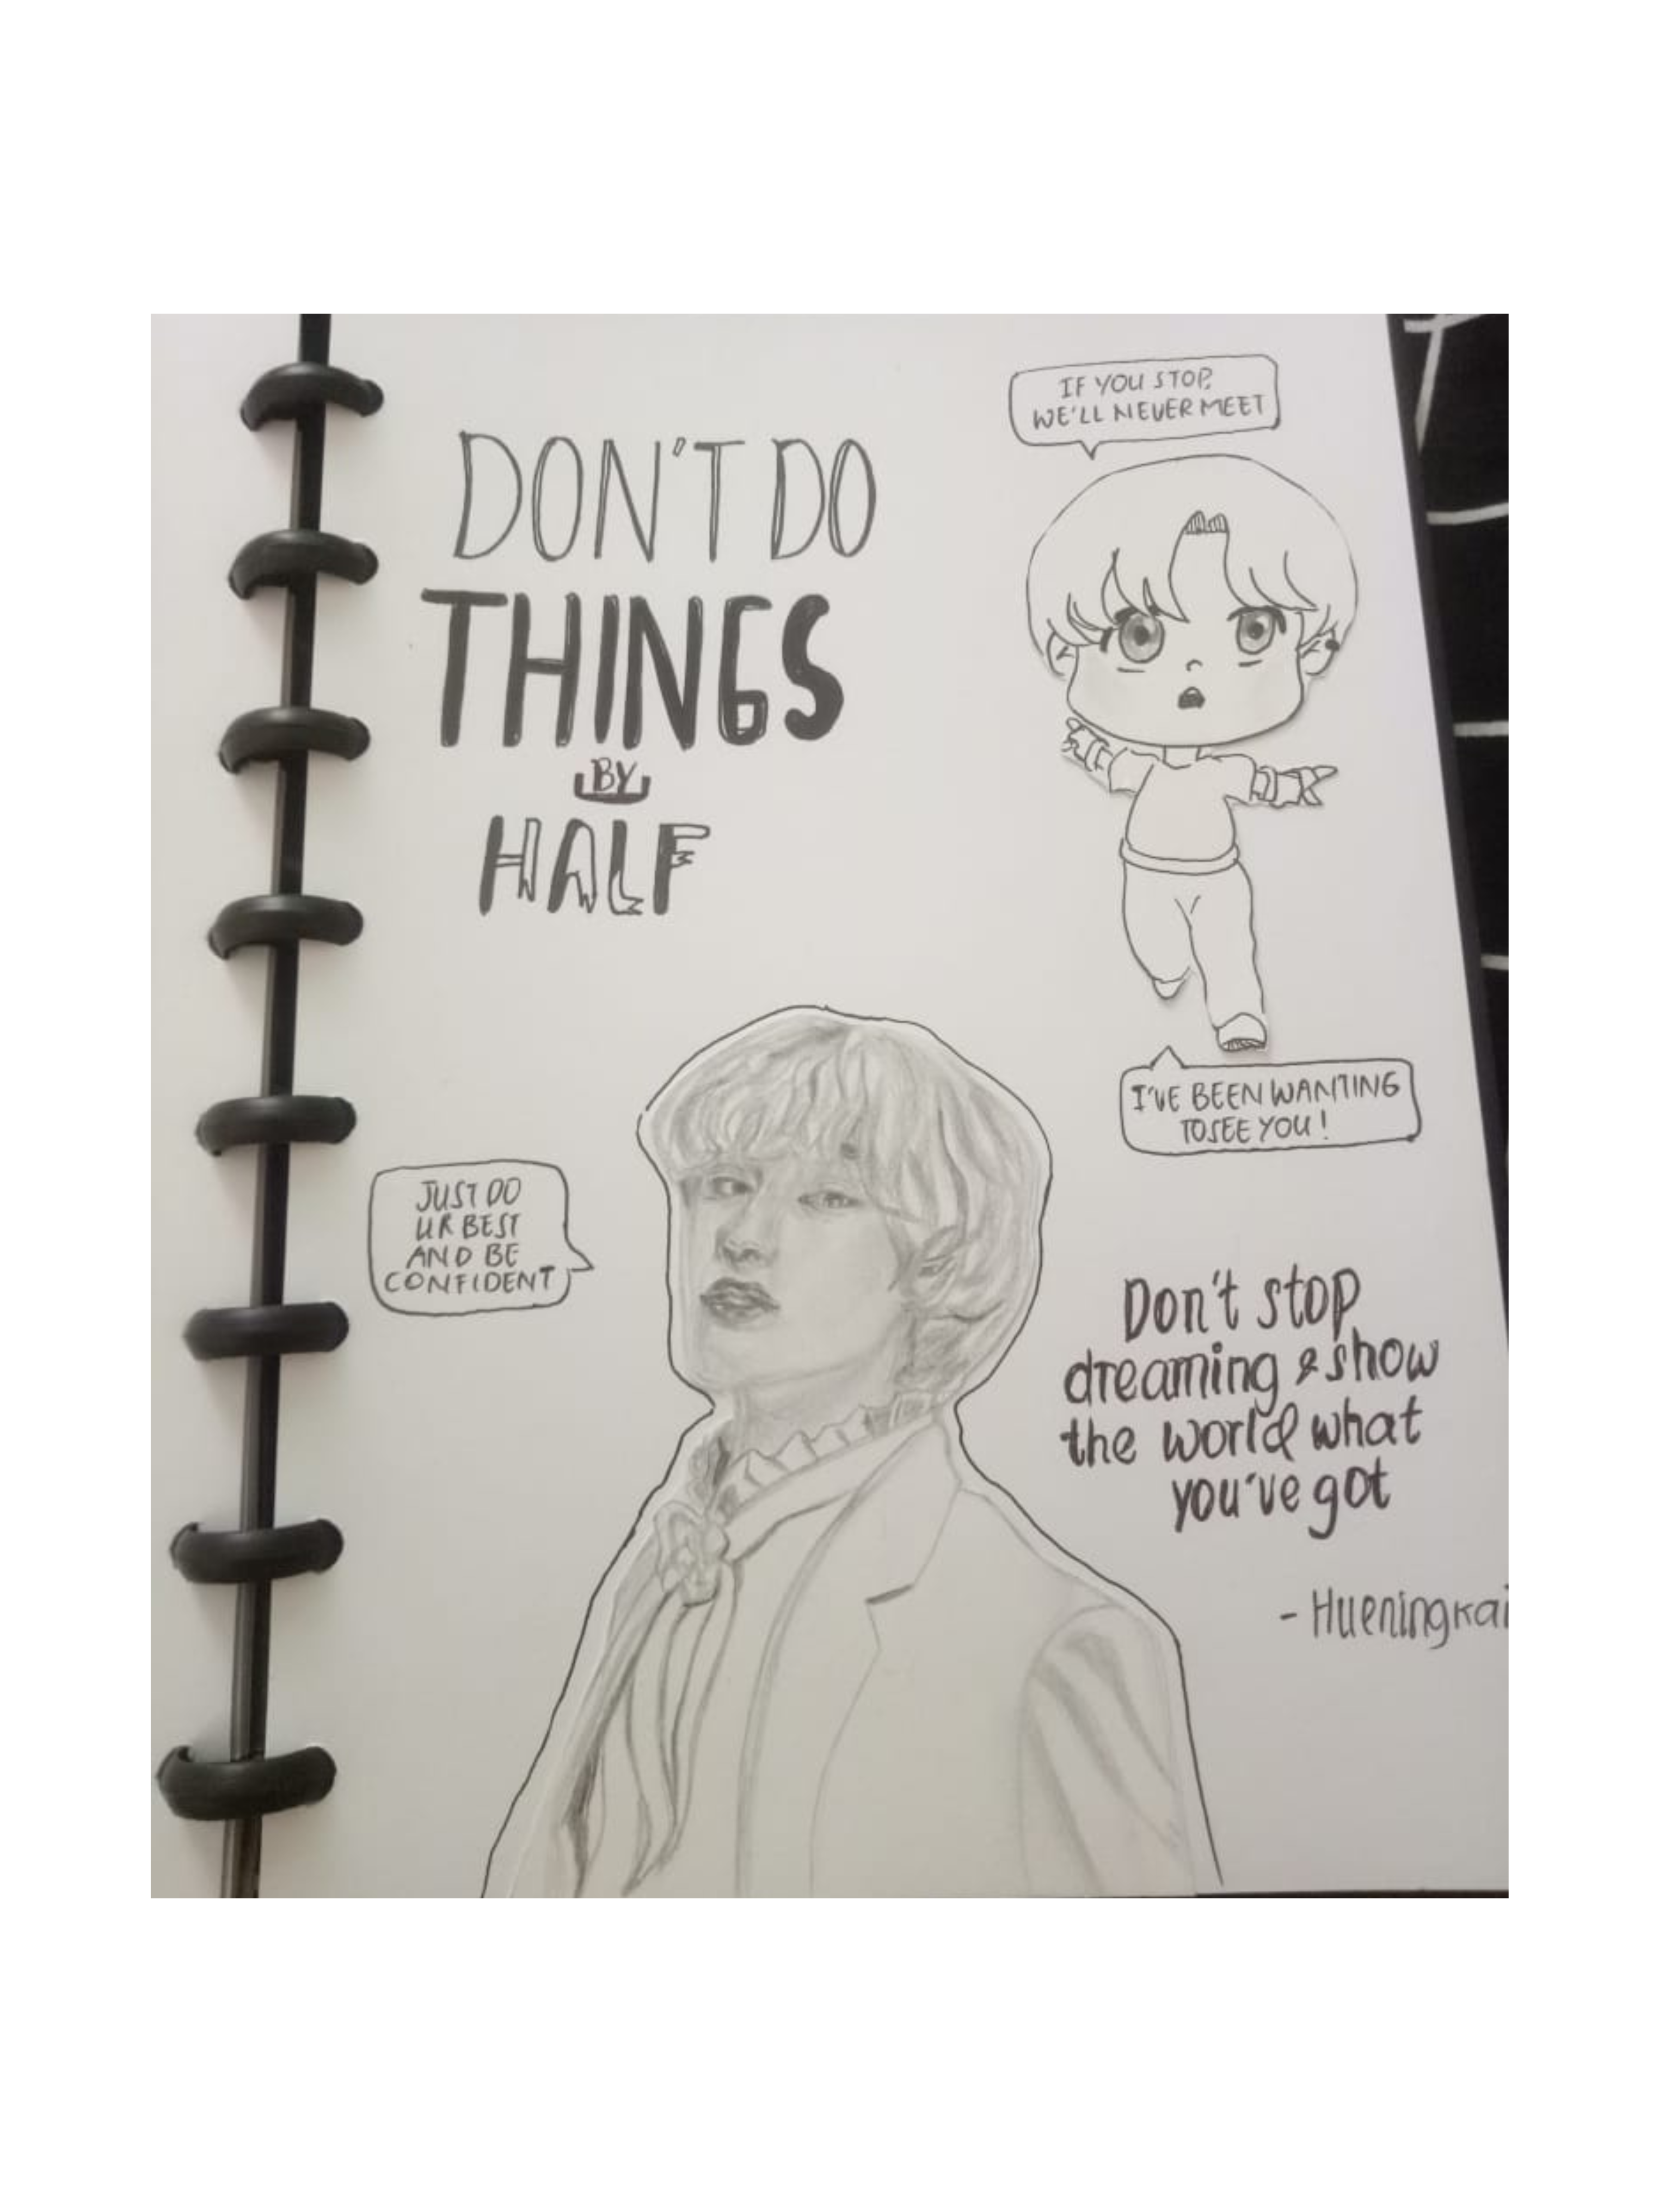 DON'T DO
THINGS
BY
HALF
IF YOU STOP,
WE'LL NEVER MEET
I'VE BEEN WANTING
TO SEE YOU!
JUST DO
UR BEST
AND BE
CONFIDENT
Don't stop
dreaming & show
the world what
you've got
- Hueningkai